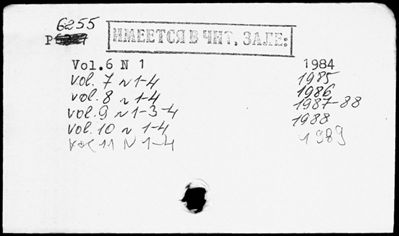 6255
P
ИМЕЕТСЯ В ЧИТ. ЗАЛЕ:
Vol.6 N 1 1984
Vol. 7 N 1-4 1985
Vol. 8 N 1-4 1986
Vol. 9 N 1-3-4 1987-88
Vol. 10 N 1-4 1988
Vol 11 N 1-4 1989